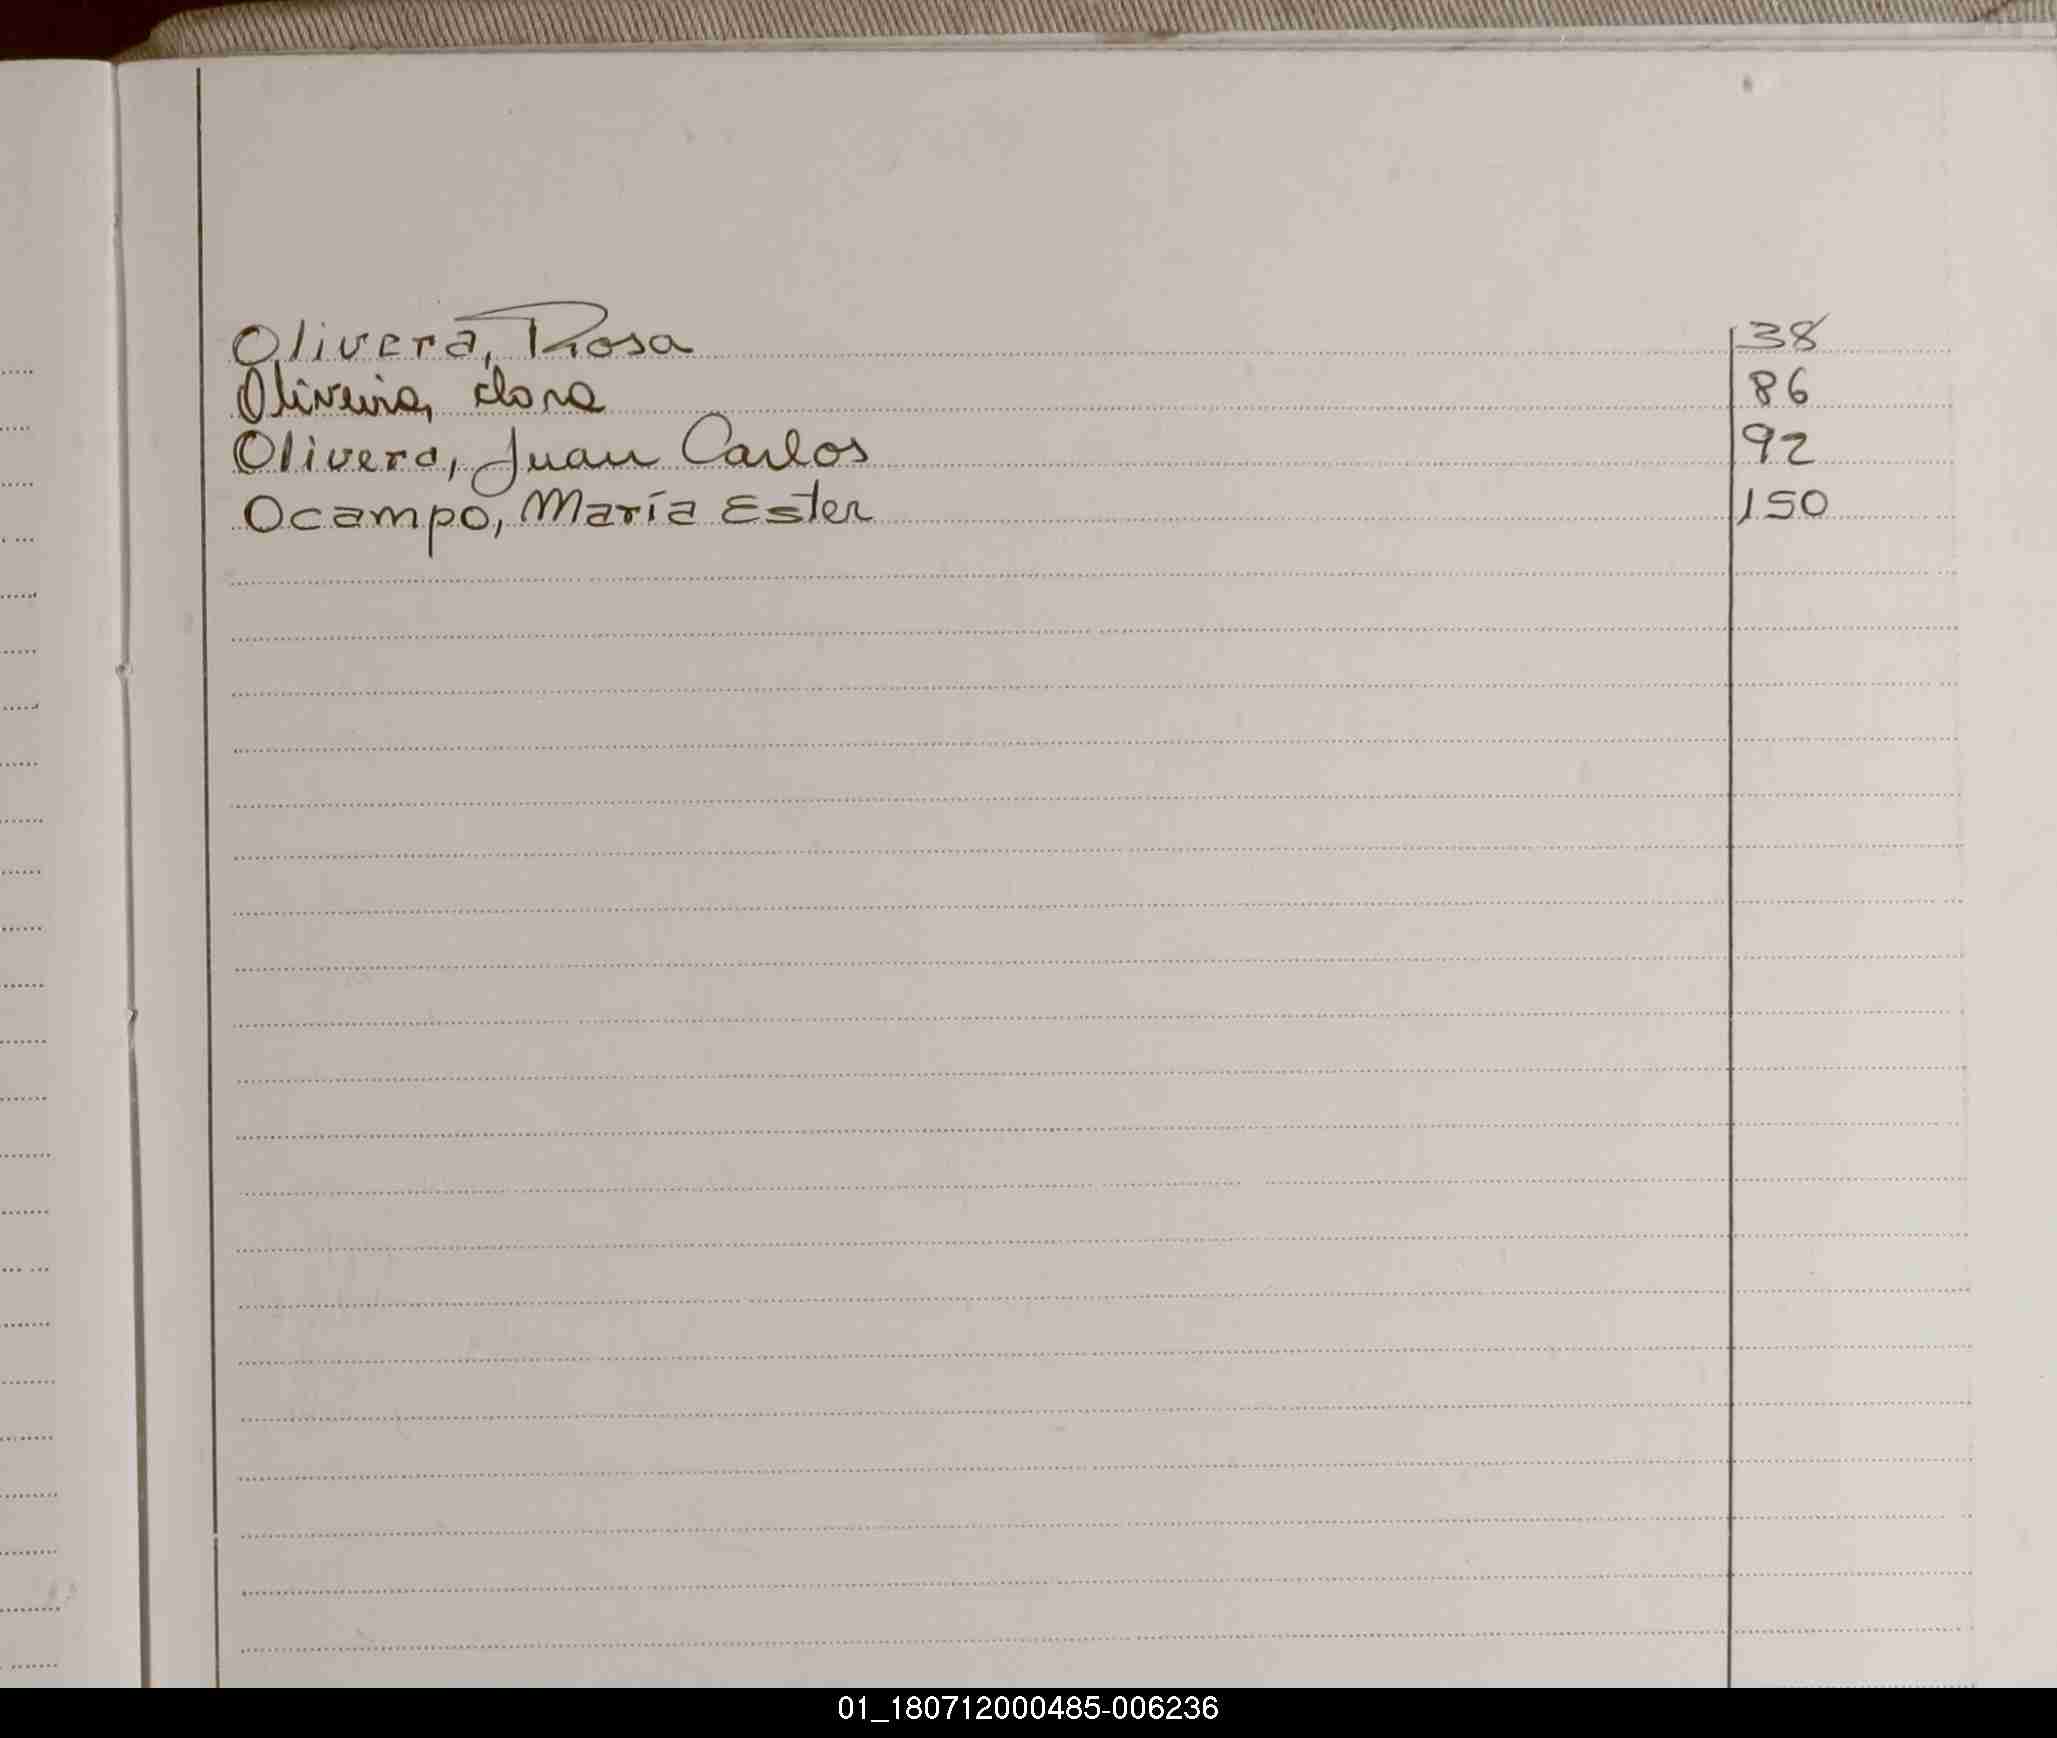 Olivera, Rosa 38
Oliveira, Clara 86
Olivera, Juan Carlos 92
Ocampo, María Ester 150
01_180712000485-006236